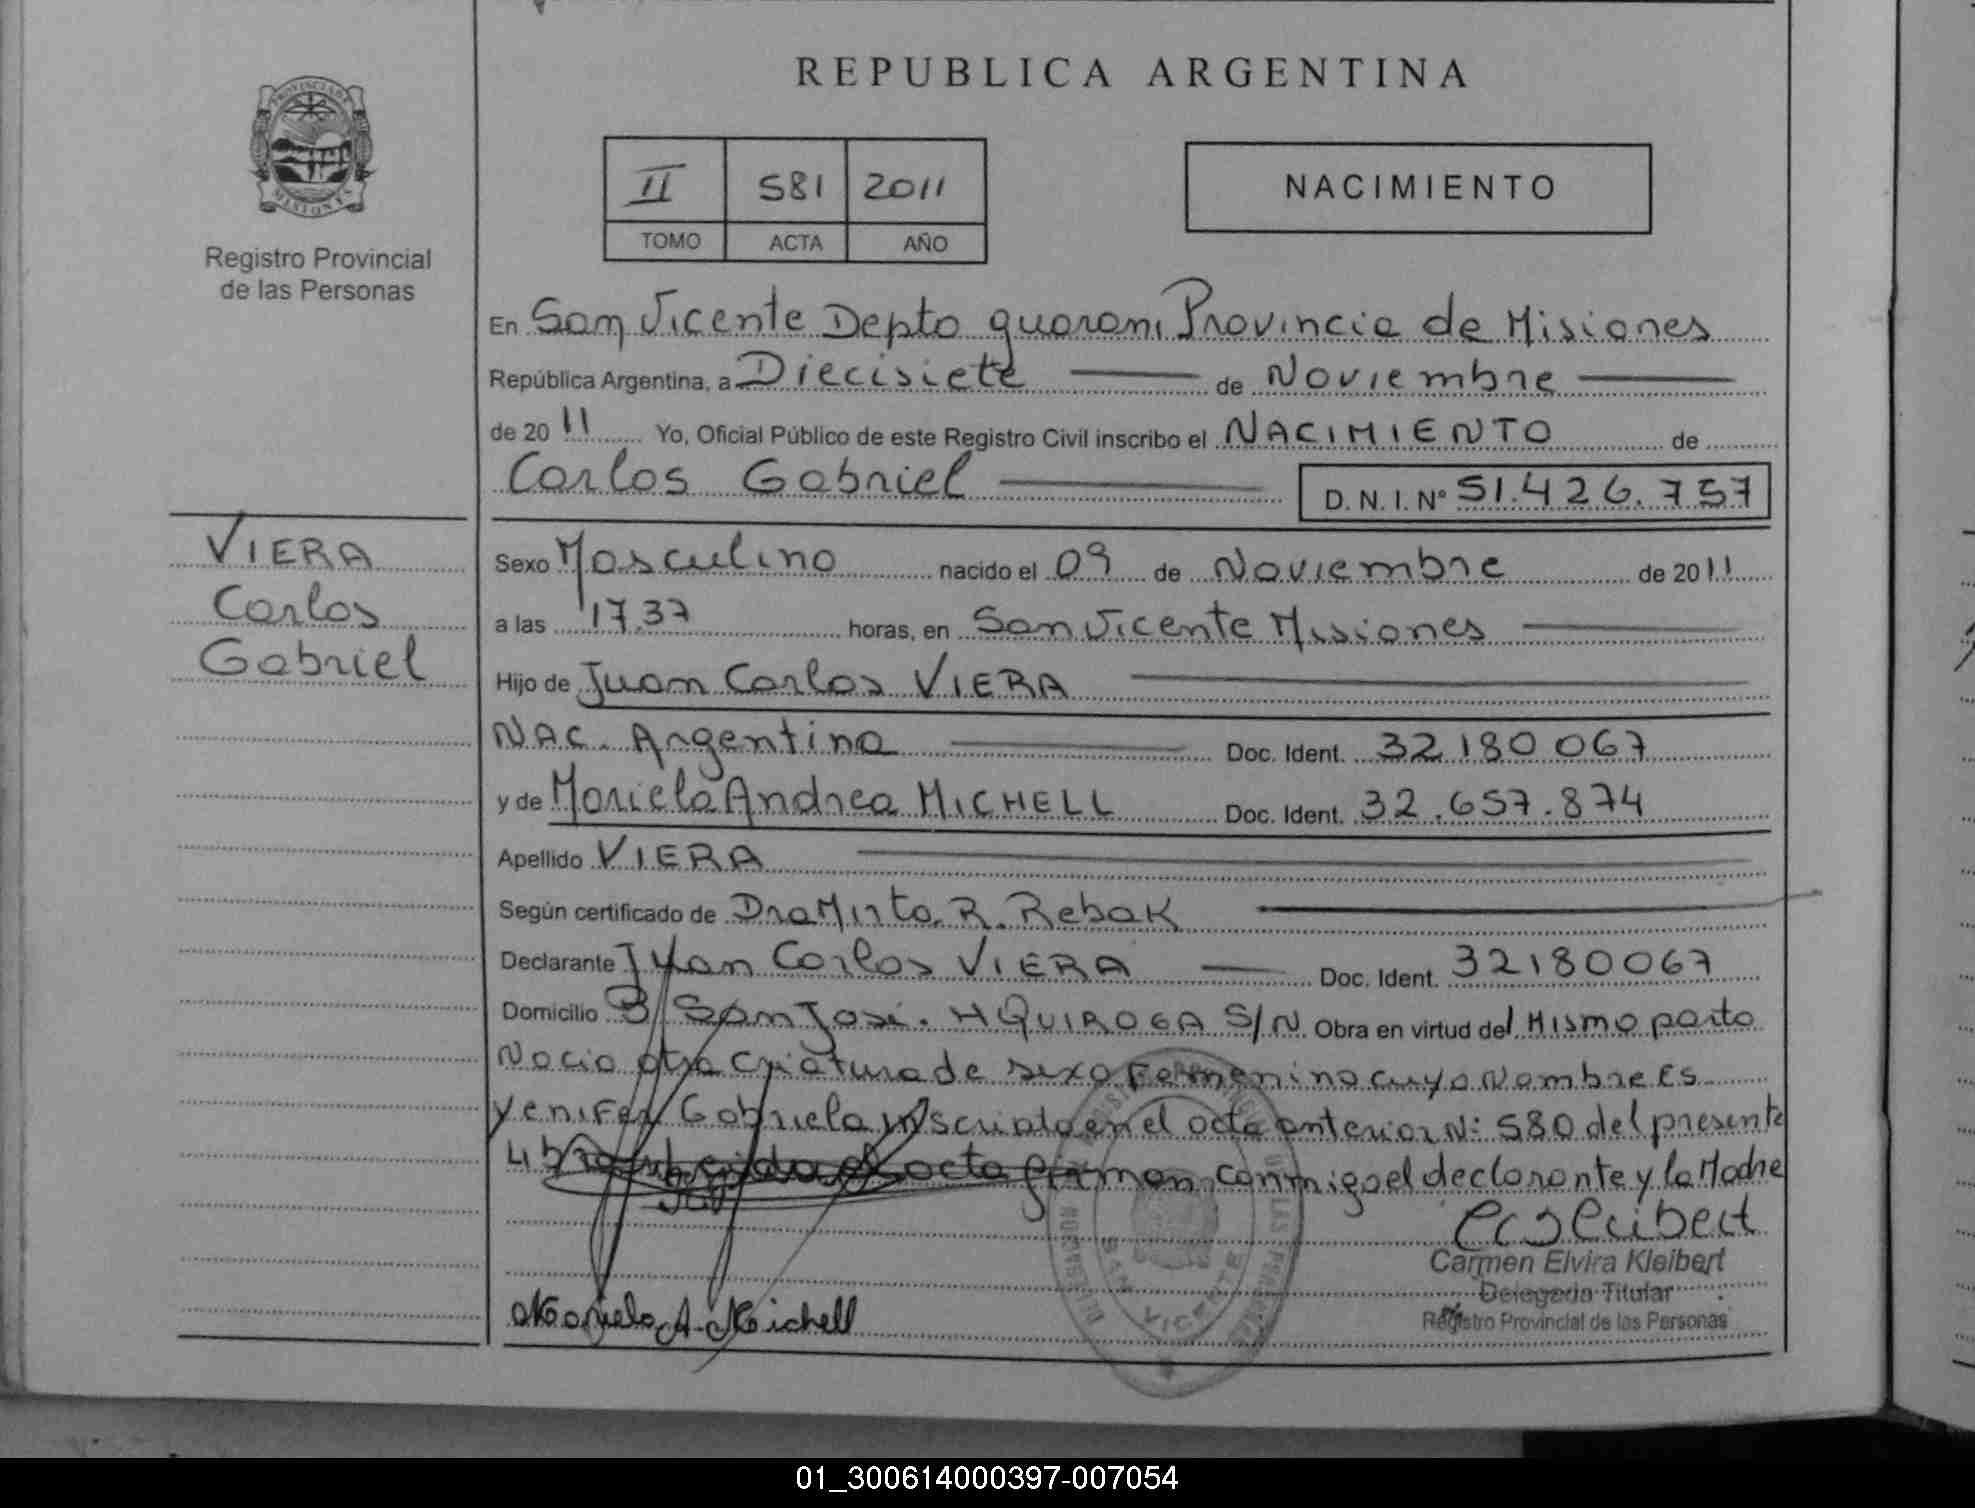 REPUBLICA ARGENTINA
PROVINCIA DE
MISIONES
Registro Provincial
de las Personas
II 581 2011
TOMO ACTA AÑO
NACIMIENTO
En San Vicente Depto guarani Provincia de Misiones
República Argentina, a Diecisiete de Noviembre
de 2011 Yo, Oficial Público de este Registro Civil inscribo el NACIMIENTO de
Carlos Gabriel D.N.I.Nº 51.426.757
VIERA
Carlos
Gabriel
Sexo Masculino nacido el 09 de Noviembre de 2011
a las 17,37 horas, en San Vicente Misiones
Hijo de Juan Carlos VIERA
NAC. Argentina Doc. Ident. 32180067
y de Mariela Andrea MICHELL Doc. Ident. 32.657.874
Apellido VIERA
Según certificado de Dra Mirta R. Rebak
Declarante Juan Carlos VIERA Doc. Ident. 32180067
Domicilio B San José. H QUIROGA S/N Obra en virtud del Mismo parto
Nacio otra criatura de sexo Femenino cuyo Nombre es
Yenifer Gabriela inscripta en el acta anterior Nº 580 del presente
Libro acta firman conmigo el declarante y la Madre
Carmen Elvira Kleibert
Delegada Titular
Registro Provincial de las Personas
Mariela A. Michell
SAN VICENTE
01_300614000397-007054